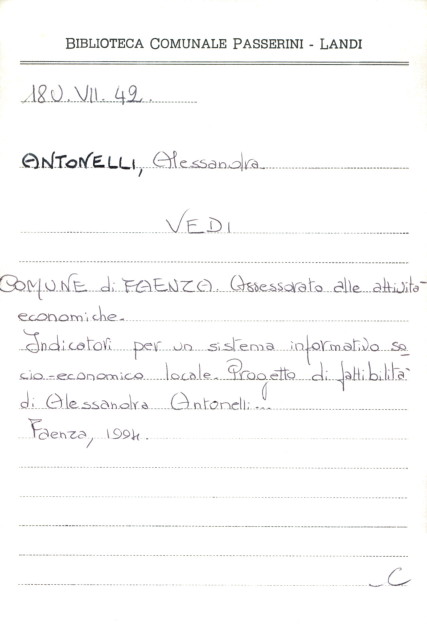 BIBLIOTECA COMUNALE PASSERINI - LANDI
18U. VII. 42.
ANTONELLI, Alessandra
VEDI
COMUNE di FAENZA. Assessorato alle attività
economiche.
Indicatori per un sistema informativo so
cio-economico locale. Progetto di fattibilità
di Alessandra Antonelli...
Faenza, 1994.
_C